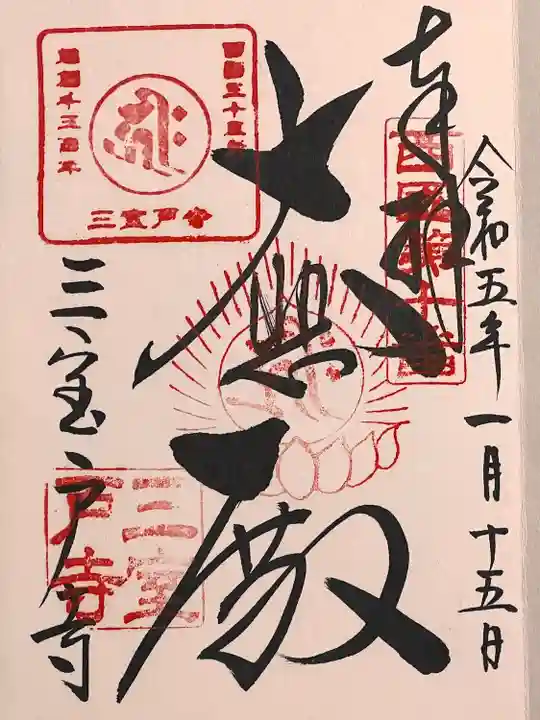 令和五年一月十五日
奉拝
西国第十番
大悲殿
西国三十三所
草創千三百年
三室戸寺
三室戸寺
三室戸寺